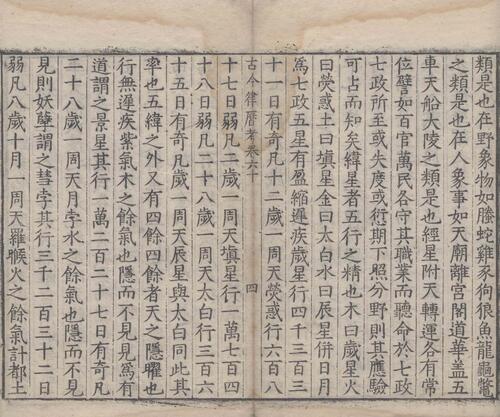 類是也在野象物如騰蛇雞豕狗狼魚龍龜鼈
之類是也在人象事如天廟離宮閣道華蓋五
車天船大陵之類是也經星附天轉運各有常
位譬如百官萬民各守其職業而聽命於七政
七政所至或失度或衍期下照分野則其應驗
可占而知矣緯星者五行之精也木曰歲星火
曰熒惑土曰塡星金曰太白水曰辰星併日月
爲七政五星有盈縮遲疾歲星行四千三百三
十一日有奇凡十二歲一周天熒惑行六百八
古今律曆考卷六十 四
十七日弱凡二歲一周天塡星行一萬七百四
十八日弱凡二十八歲一周天太白行三百六
十五日有奇凡歲一周天辰星與太白同此其
率也五緯之外又有四餘四餘者天之隱曜也
行無遲疾紫氣木之餘氣也隱而不見見爲有
道謂之景星其行一萬二百二十七日有奇凡
二十八歲一周天月孛水之餘氣也隱而不見
見則妖孽謂之彗孛其行三千二百三十二日
弱凡八歲十月一周天羅睺火之餘氣計都土